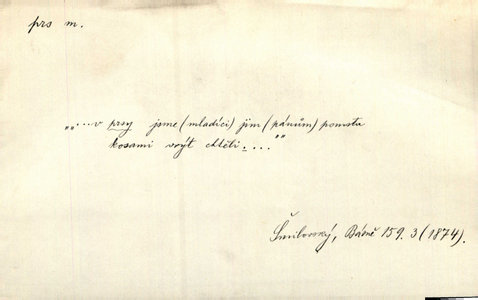 prs m.
„„...v prsy jsme (mladíci) jim (pánům) pomstu
kosami vrýt chtěli....““
Šmilovský, Básně 159. 3 (1874).